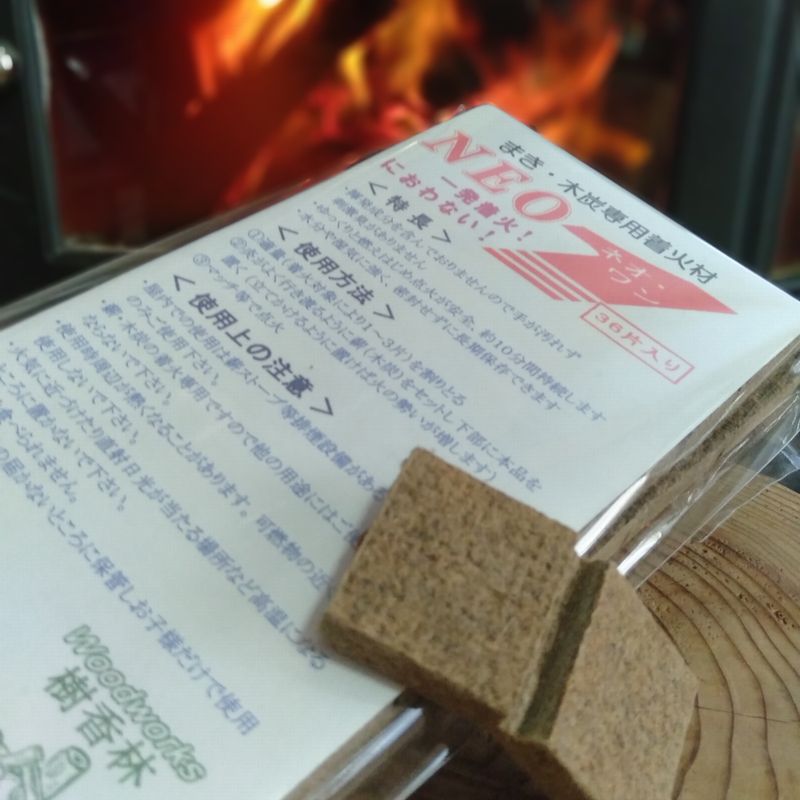 まき・木炭専用着火材
NEO
ネオ・
ワン
一発着火!
におわない!
36片入り
<特長>
・揮発成分を含んでおりませんので手が汚れず
刺激臭がありません
・ゆっくりと燃えはじめ点火が安全、約10分間持続します
・水分や湿気に強く、密封せずに長期保存できます
<使用方法>
①適量(着火対象により1~3片)を割りとる
②炎がよく行き渡るように薪(木炭)をセットし下部に本品を
置く(立てかけるように置けば火の勢いが増します)
③マッチ等で点火
<使用上の注意>
・屋内での使用は薪ストーブ等排煙設備がある
のみご使用下さい。
・薪・木炭の着火専用ですので他の用途にはご
ならないで下さい。
・使用時周辺が熱くなることがあります。可燃物の近
使用しないで下さい。
火気に近づけたり直射日光が当たる場所など高温になる
ところに置かないで下さい。
食べられません。
の届かないところに保管しお子様だけで使用
Woodworks
樹香林